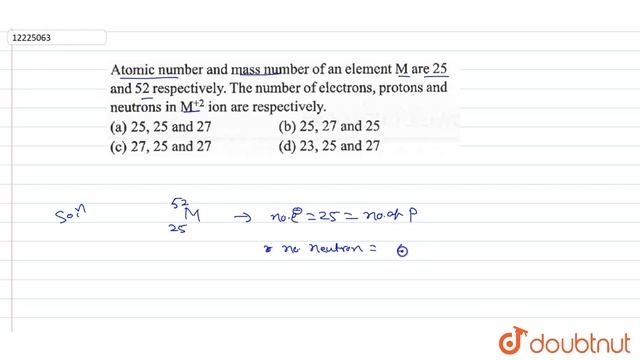 12225063
Atomic number and mass number of an element M are 25
and 52 respectively. The number of electrons, protons and
neutrons in M⁺² ion are respectively.
(a) 25, 25 and 27 (b) 25, 27 and 25
(c) 27, 25 and 27 (d) 23, 25 and 27
Solⁿ ⁵²₂₅M → no. e⁻ = 25 = no. of P
no. neutron =
doubtnut